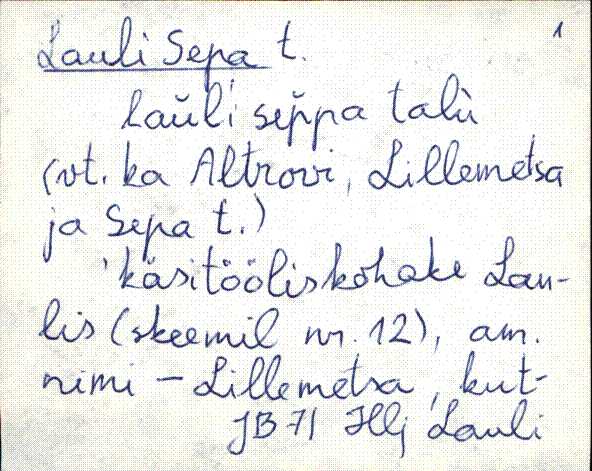 1
Lauli Sepa t.
laŭli sep̆pa talù
(vt. ka Altrovi, Lillemetsa
ja Sepa t.)
käsitööliskohake Lau-
lis (skeemil nr. 12), am.
nimi - Lillemetsa, kut-
JB 71 Hlj Lauli